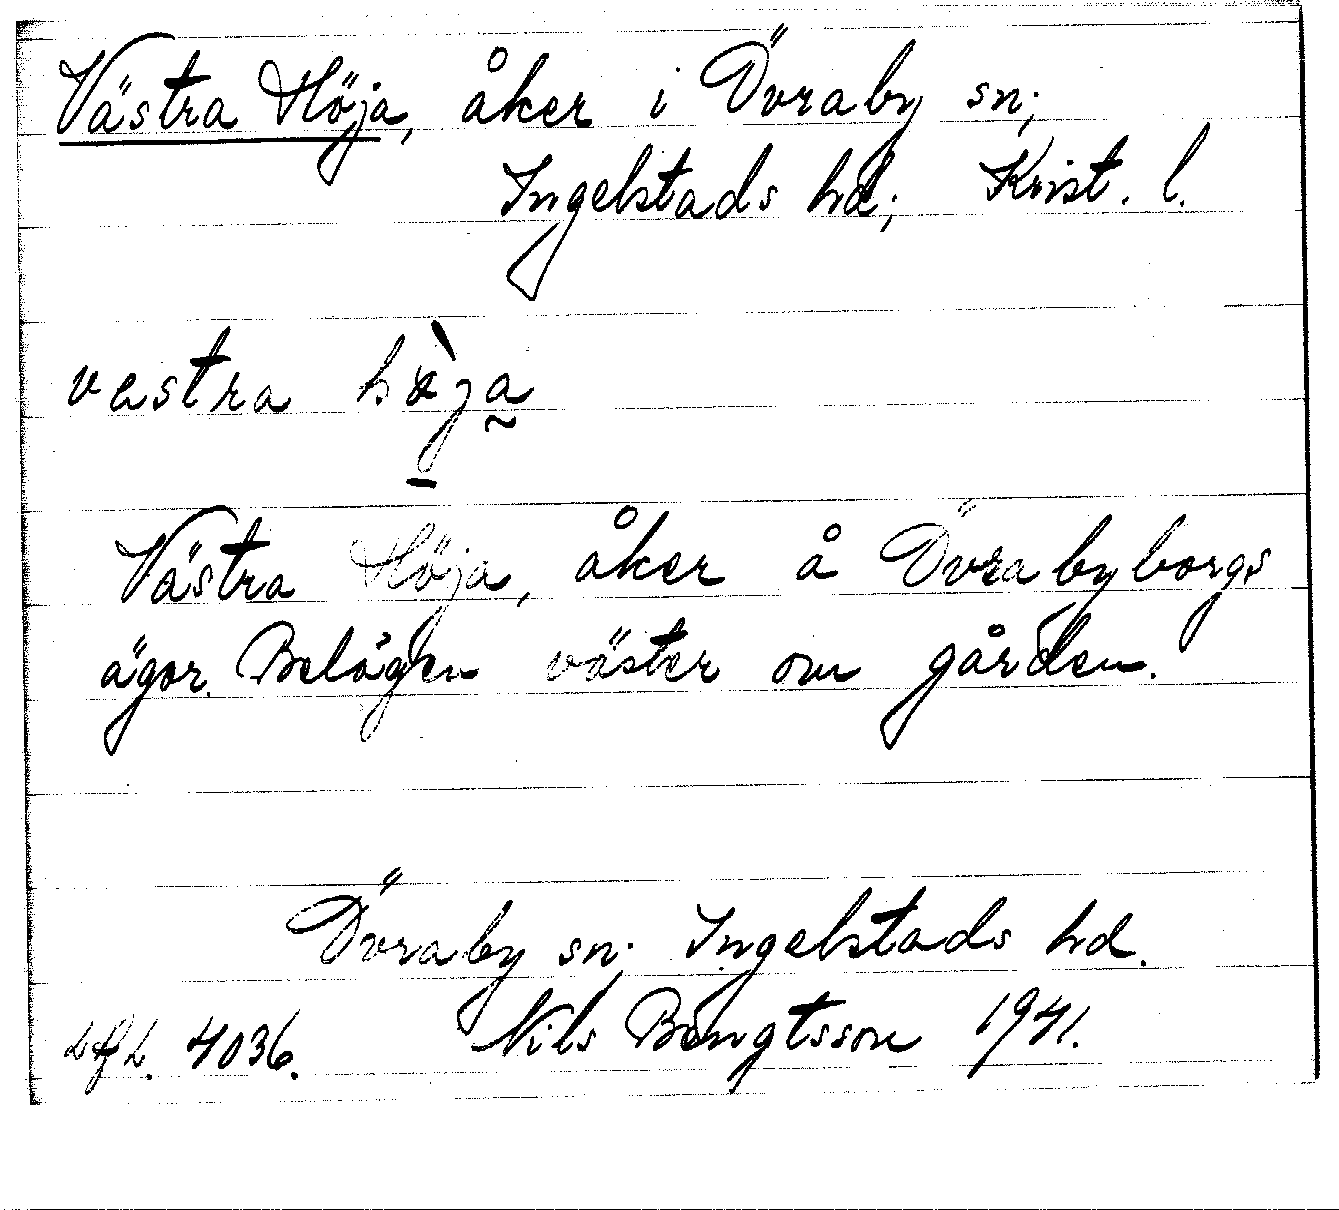 Västra Höja, åker i Övraby sn;
Ingelstads hd; Krist. l.
vestra hòja
Västra Höja, åker å Övrabyborgs
ägor. Belägen väster om gården.
Övraby sn; Ingelstads hd.
4036. Nils Bengtsson 1941.